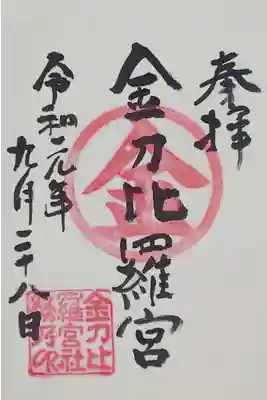 奉拝
金刀比羅宮
金
令和元年
九月二十八日
金刀比
羅宮社